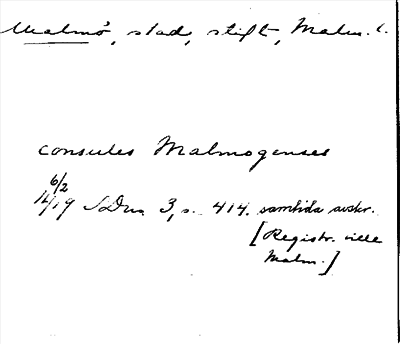 Malmö, stad, stift, Malm. l.
consules Malmogenses
6/2
1419 SDns 3, s. 414. samtida avskr.
[Registr. ville
Malm.]